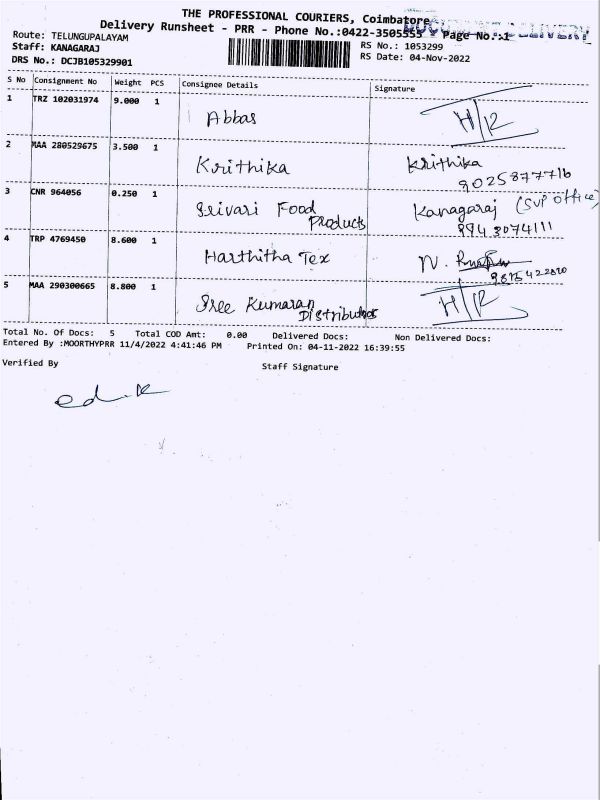 THE PROFESSIONAL COURIERS, Coimbatore
DOCUMENT DELIVERY
Delivery Runsheet - PRR - Phone No.:0422-3505555 * Page No.:1
Route: TELUNGUPALAYAM
RS No.: 1053299
Staff: KANAGARAJ
RS Date: 04-Nov-2022
DRS No.: DCJB105329901
S No Consignment No Weight PCS Consignee Details Signature
1 TRZ 102031974 9.000 1 Abbas H/R
2 MAA 280529675 3.500 1 Krithika Krithika
9025877716
3 CNR 964056 0.250 1 Srivari Food Kanagaraj (SVP office)
Products 9943074111
4 TRP 4769450 8.600 1 Harthitha Tex N.
5 MAA 290300665 8.800 1 Sree Kumaran H/R
Distributors
Total No. Of Docs: 5 Total COD Amt: 0.00 Delivered Docs: Non Delivered Docs:
Entered By :MOORTHYPRR 11/4/2022 4:41:46 PM Printed On: 04-11-2022 16:39:55
Verified By Staff Signature